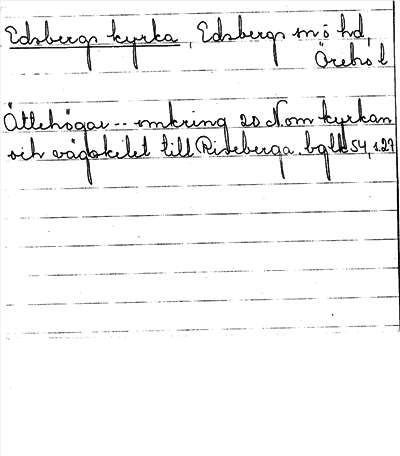 Edsbergs kyrka, Edsbergs sn ö hd,
Örebro l
Ättehögar -- omkring 20 N.om kyrkan
och vägskilet till Riseberga. bglk 54, s.27